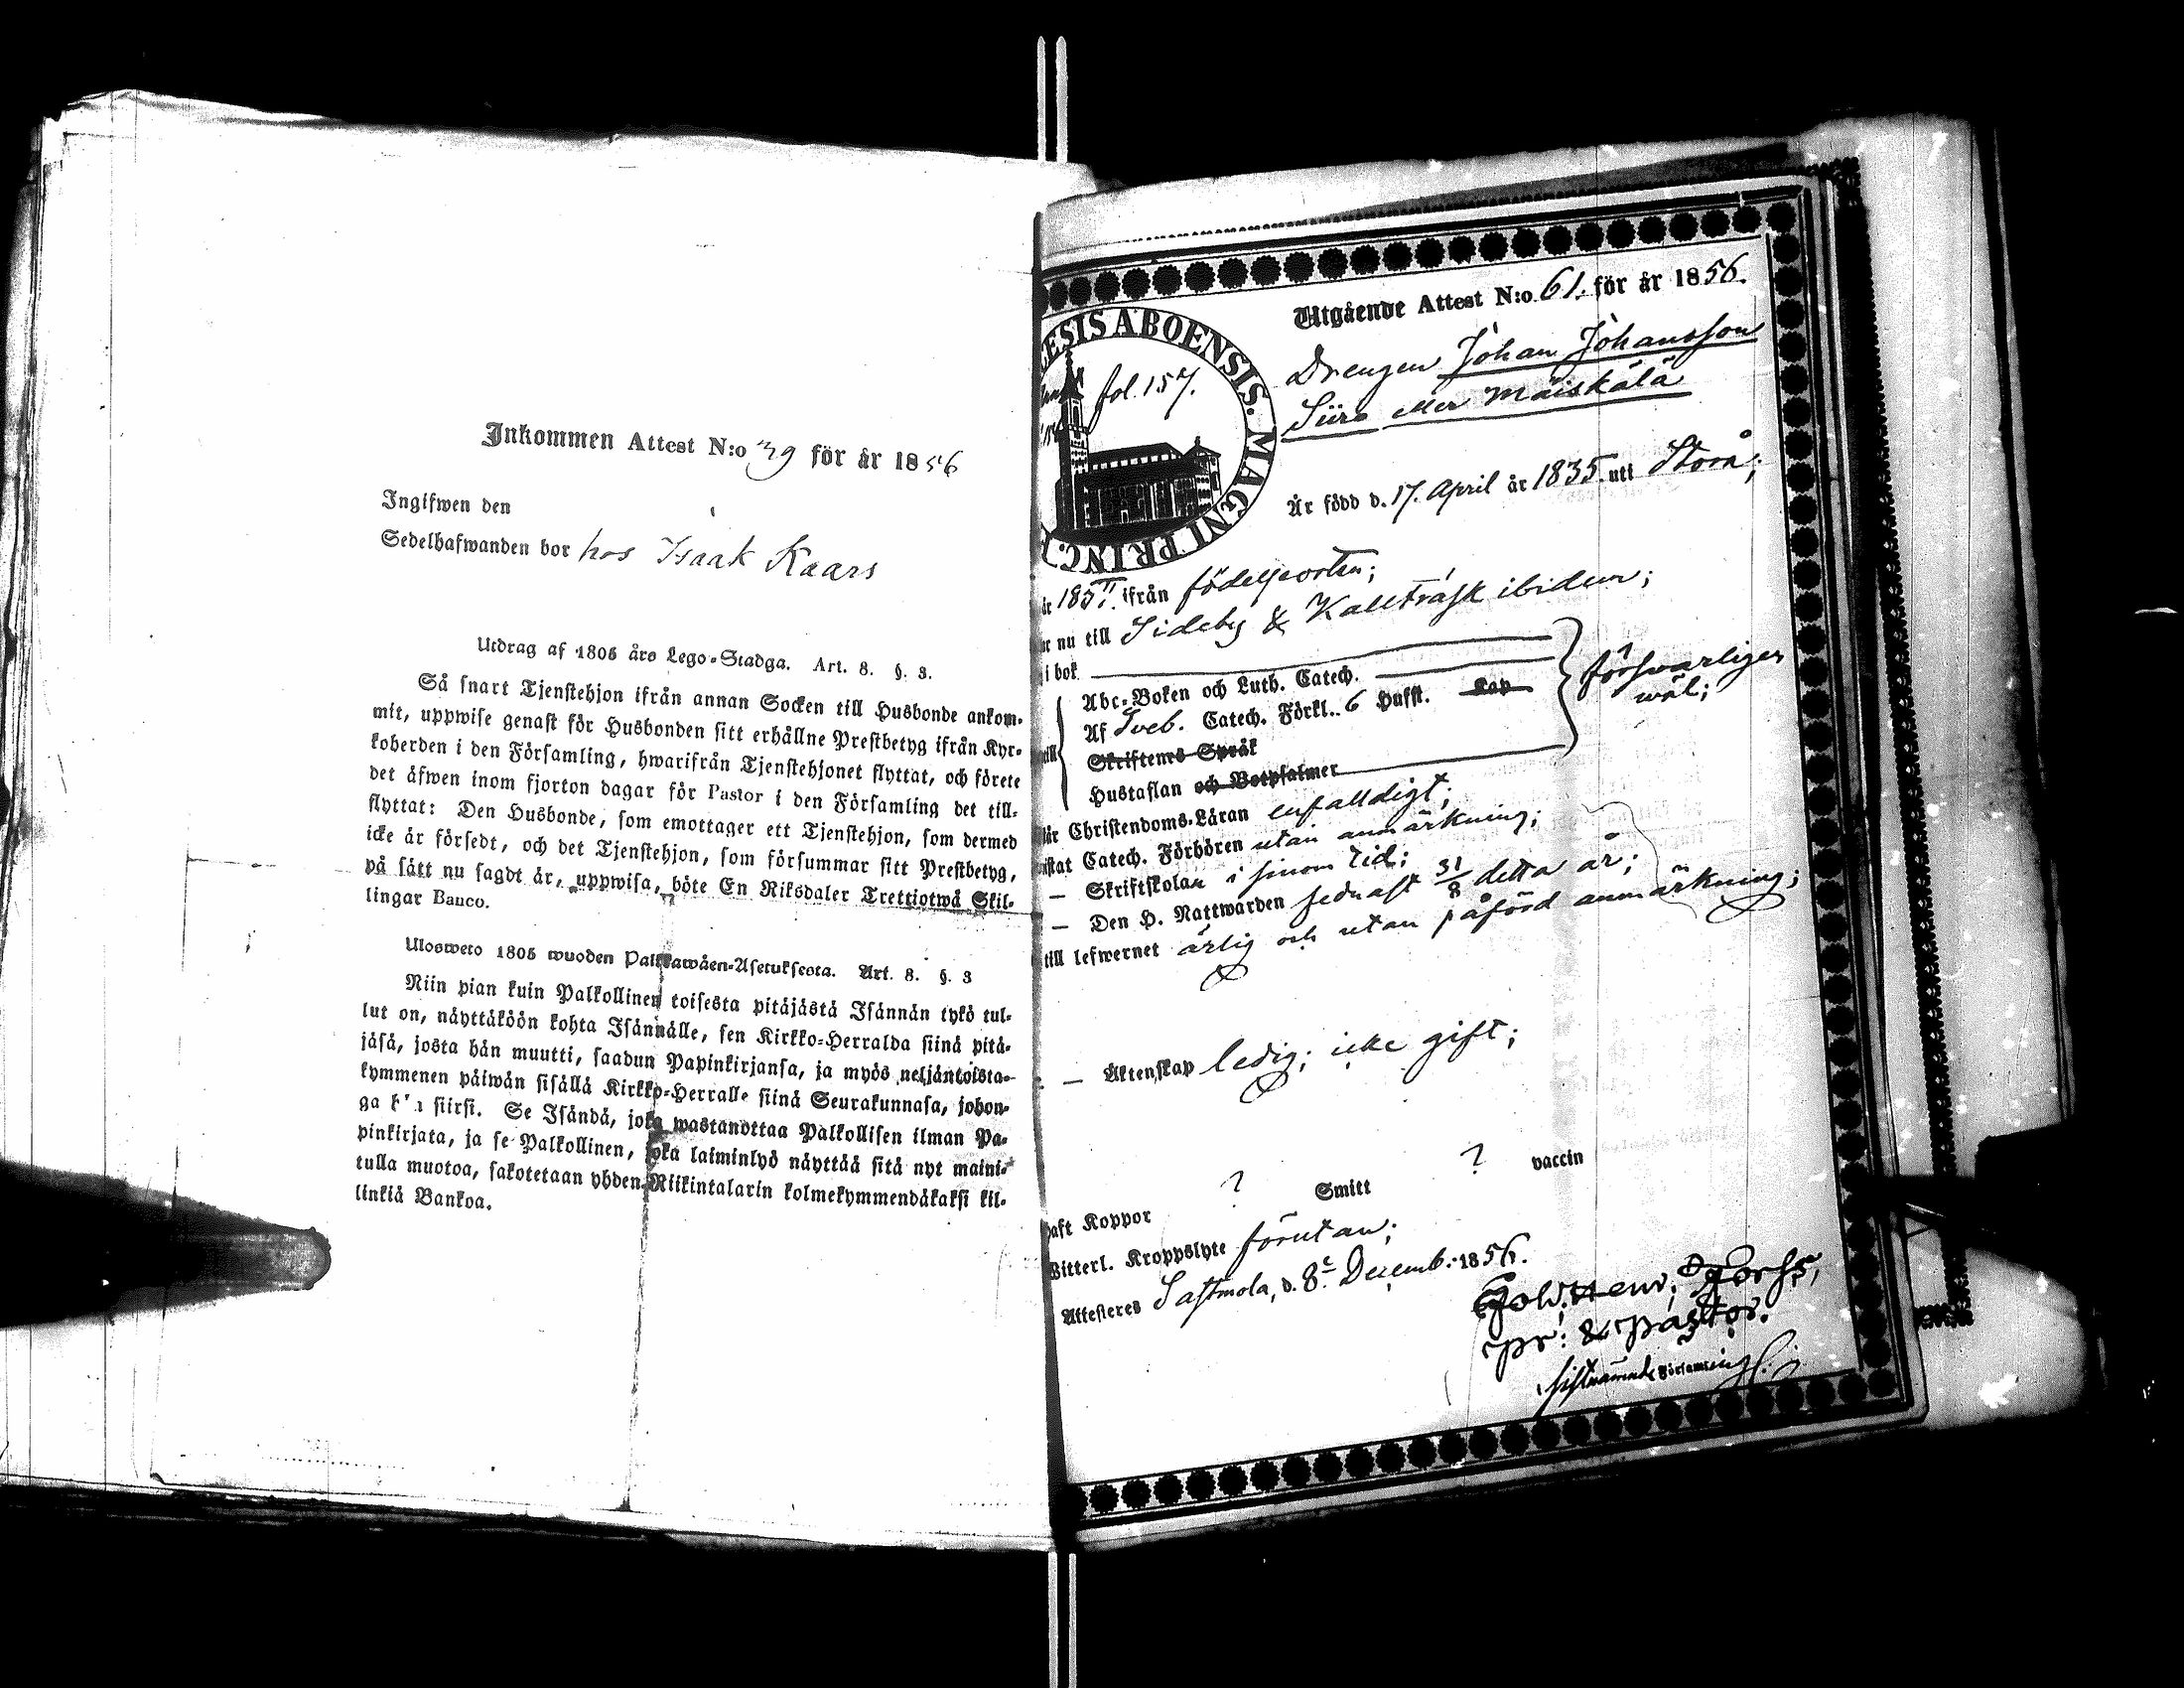 Inkommen Attest N:o 39 för år 1856
Ingifwen den
Sedelhafwanden bor hos Isaak Kaars
Utdrag af 1805 års Lego-Stadga. Art. 8. §. 3.
Så snart Tjenstehjon ifrån annan Socken till Husbonde ankom-
mit, uppwise genast för Husbonden sitt erhållne Prestbetyg ifrån Kyr-
koherden i den Församling, hwarifrån Tjenstehjonet flyttat, och förete
det äfwen inom fjorton dagar för Pastor i den Församling det till-
flyttat: Den Husbonde, som emottager ett Tjenstehjon, som dermed
icke är försedt, och det Tjenstehjon, som försummar sitt Prestbetyg,
på sätt nu sagdt är, uppwisa, böte En Riksdaler Trettiotwå Skil-
lingar Banco.
Ulosweto 1805 wuoden Palkkawäen-Asetuksesta. Art. 8. §. 3
Niin pian kuin Palkollinen toisesta pitäjästä Isännän tykö tul-
lut on, näyttäköön kohta Isännälle, sen Kirkko-Herralda siinä pitä-
jäsä, josta hän muutti, saadun Papinkirjansa, ja myös neljäntoista-
kymmenen päiwän sisällä Kirkko-Herralle siinä Seurakunnasa, johon-
ga hän siirsi. Se Isändä, joka wastanottaa Palkollisen ilman Pa-
pinkirjata, ja se Palkollinen, joka laiminlyö näyttää sitä nyt maini-
tulla muotoa, sakotetaan yhden Riikintalarin kolmekymmendäkaksi kil-
linkiä Bankoa.
ESIS ABOENSIS. MAGNI PRINC.
fol. 157.
Utgående Attest N:o 61. för år 1856.
Drengen Johan Johansson
Siiro eller Mäiskälä
Är född d. 17. April år 1835. uti Storå;
år 185 ifrån födelseorten;
nu till Sideby & Kallträsk ibidem;
i bok
Abc-Boken och Luth. Catech.
Af Sveb. Catech. Förkl. 6 Hufst. Kap
försvarligen
wäl;
Skriftenes Språk
Hustaflan och Botpsalmer
Christendoms-Läran enfalldigt;
Catech. Förhören utan anmärkning;
— Skriftskolan i sinom tid;
— Den H. Nattwarden sednast 31/8 detta år;
till lefwernet ärlig och utan påförd anmärkning;
— Äktenskap ledig; icke gift;
haft Koppor ? Smitt ? vaccin
Witterl. Kroppslyte förutan;
Attesteres Sastmola, d. 8e Decemb. 1856.
Henr. Forss,
pr: & Pastor.
Församling